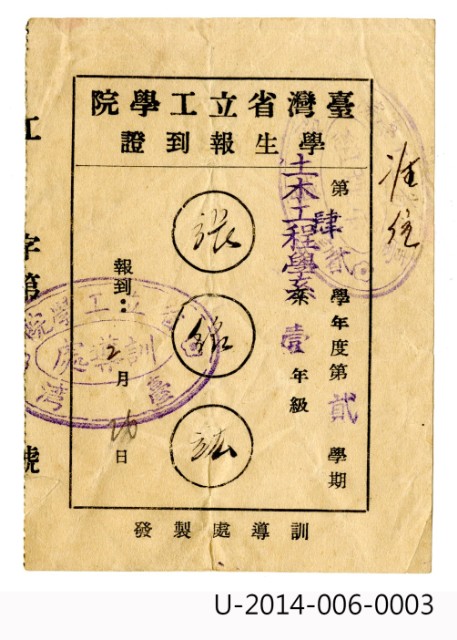 臺灣省立工學院
學生報到證
第肆學年度第貳學期
土木工程學系壹年級
張
銘
報到：2月 日
訓導處製發
准住
工
字第
號
臺灣省立工學院
訓導處
U-2014-006-0003